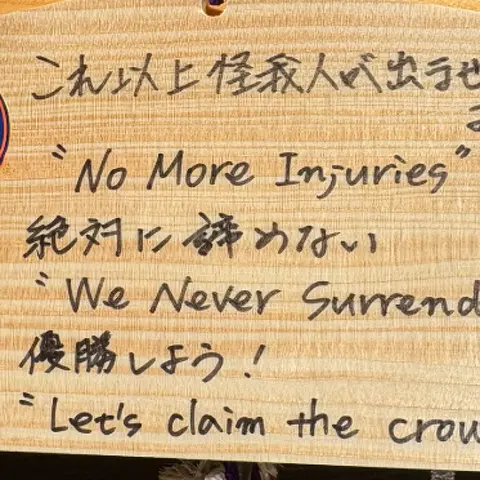 これ以上怪我人が出ませ
"No More Injuries"
絶対に諦めない
"We Never Surrend
優勝しよう!
"Let's claim the crow